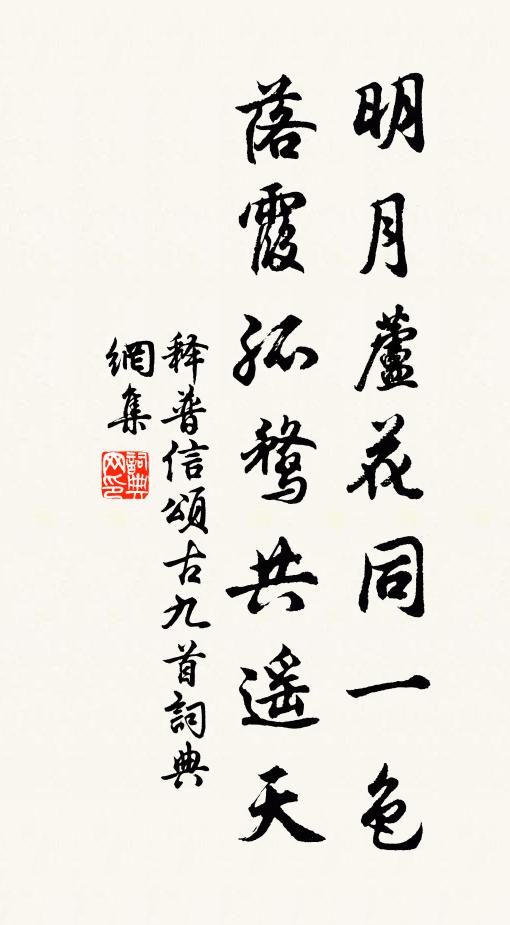 明月蘆花同一色
落霞孤鶩共遥天
释普信頌古九首詞典
網集
詞典网印